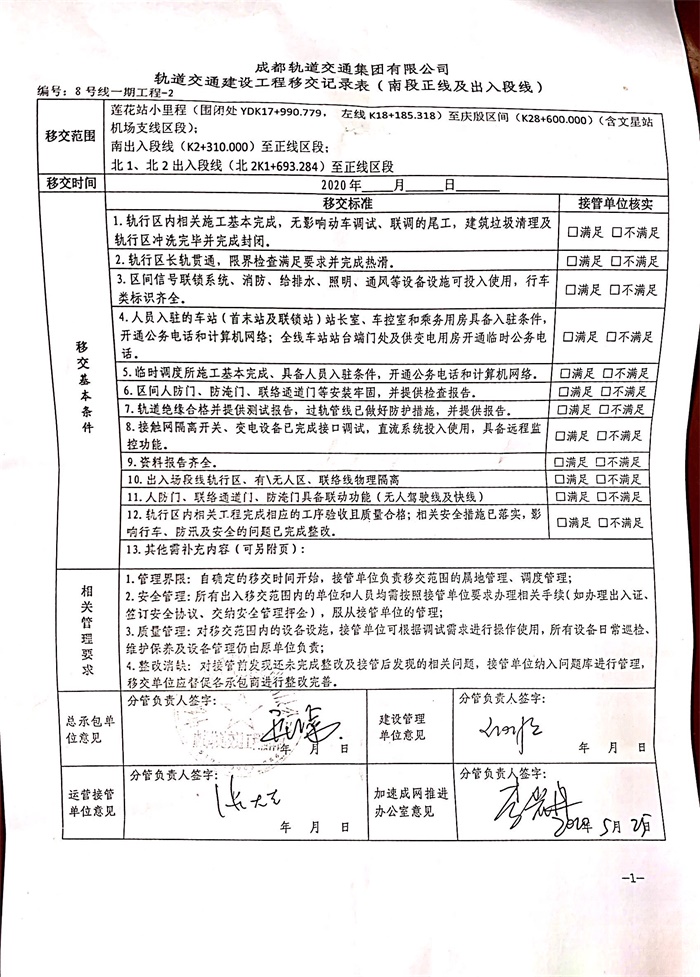 成都轨道交通集团有限公司
轨道交通建设工程移交记录表（南段正线及出入段线）
编号：8 号线一期工程-2
移交范围
莲花站小里程（围闭处 YDK17+990.779， 左线 K18+185.318）至庆殷区间（K28+600.000）（含文星站
机场支线区段）；
南出入段线（K2+310.000）至正线区段；
北 1、北 2 出入段线（北 2K1+693.284）至正线区段
移交时间
2020 年____月____日
移交基本条件
移交标准
接管单位核实
1. 轨行区内相关施工基本完成，无影响动车调试、联调的尾工，建筑垃圾清理及
轨行区冲洗完毕并完成封闭。
□满足 □不满足
2. 轨行区长轨贯通，限界检查满足要求并完成热滑。
□满足 □不满足
3. 区间信号联锁系统、消防、给排水、照明、通风等设备设施可投入使用，行车
类标识齐全。
□满足 □不满足
4. 人员入驻的车站（首末站及联锁站）站长室、车控室和乘务用房具备入驻条件，
开通公务电话和计算机网络；全线车站站台端门处及供变电用房开通临时公务电
话。
□满足 □不满足
5. 临时调度所施工基本完成、具备人员入驻条件，开通公务电话和计算机网络。
□满足 □不满足
6. 区间人防门、防淹门、联络通道门等安装牢固，并提供检查报告。
□满足 □不满足
7. 轨道绝缘合格并提供测试报告，过轨管线已做好防护措施，并提供报告。
□满足 □不满足
8. 接触网隔离开关、变电设备已完成接口调试，直流系统投入使用，具备远程监
控功能。
□满足 □不满足
9. 资料报告齐全。
□满足 □不满足
10. 出入场段线轨行区、有\无人区、联络线物理隔离
□满足 □不满足
11. 人防门、联络通道门、防淹门具备联动功能（无人驾驶线及快线）
□满足 □不满足
12. 轨行区内相关工程完成相应的工序验收且质量合格；相关安全措施已落实，影
响行车、防汛及安全的问题已完成整改。
□满足 □不满足
13. 其他需补充内容（可另附页）：
相关管理要求
1. 管理界限：自确定的移交时间开始，接管单位负责移交范围的属地管理、调度管理；
2. 安全管理：所有出入移交范围内的单位和人员均需按照接管单位要求办理相关手续（如办理出入证、
签订安全协议、交纳安全管理押金），服从接管单位的管理；
3. 质量管理：对移交范围内的设备设施，接管单位可根据调试需求进行操作使用，所有设备日常巡检、
维护保养及设备管理仍由原单位负责；
4. 整改消缺：对接管前发现还未完成整改及接管后发现的相关问题，接管单位纳入问题库进行管理，
移交单位应督促各承包商进行整改完善。
总承包单
位意见
分管负责人签字：
年 月 日
建设管理
单位意见
分管负责人签字：
年 月 日
运营接管
单位意见
分管负责人签字：
年 月 日
加速成网推进
办公室意见
分管负责人签字：
2020年 5月 25日
-1-